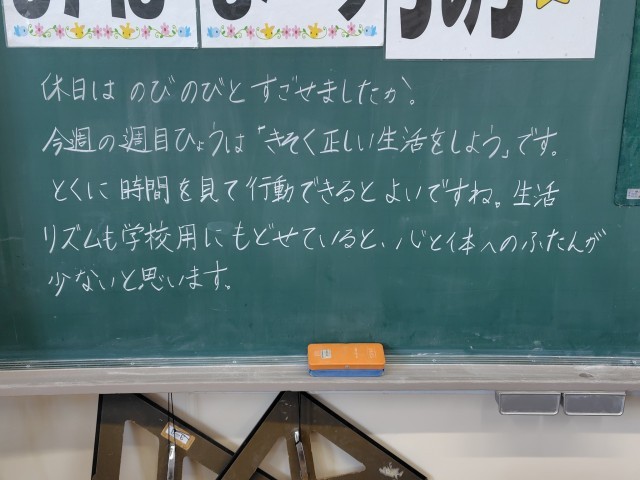 休日は のびのびと すごせましたか。
今週の週目ひょうは「きそく正しい生活をしよう」です。
とくに 時間を見て行動できるとよいですね。生活
リズムも学校用にもどせていると、心と体へのふたんが
少ないと思います。